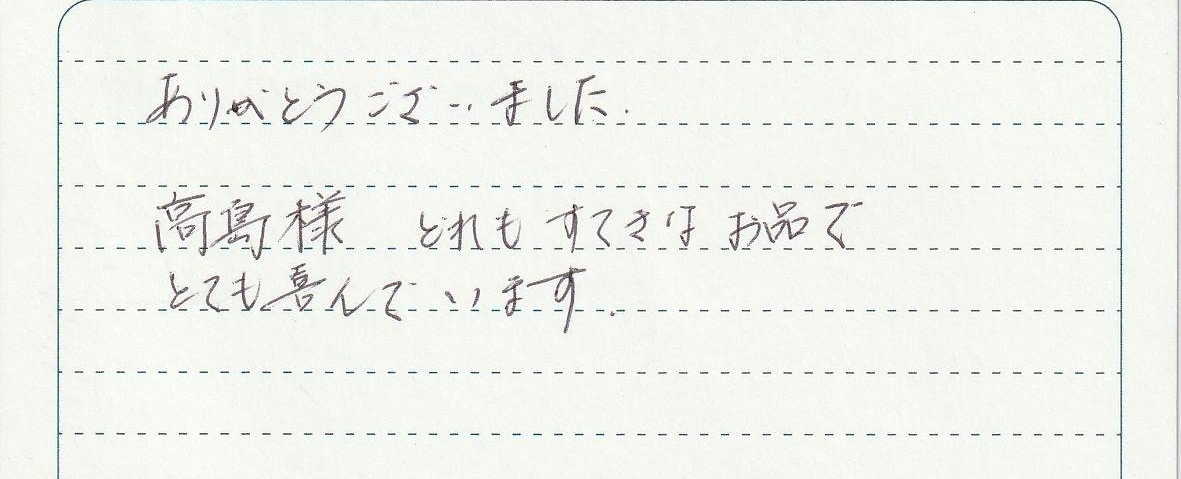 ありがとうございました.
高島様 どれもすてきなお品で
とても喜んでいます.